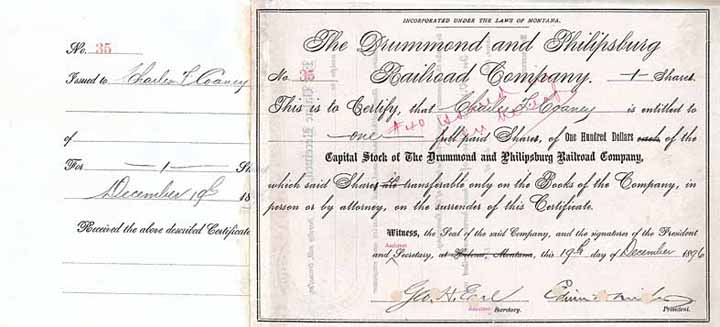 No. 35
Issued to Charles F. Coaney
of
For 1 Sh
December 19th 18
Received the above described Certificate
INCORPORATED UNDER THE LAWS OF MONTANA.
The Drummond and Philipsburg
No. 35 Railroad Company. 1 Shares
This is to Certify, that Charles F. Coaney is entitled to
one full paid Shares, of One Hundred Dollars each, of the
Capital Stock of The Drummond and Philipsburg Railroad Company,
which said Shares are transferable only on the Books of the Company, in
person or by attorney, on the surrender of this Certificate.
Witness, the Seal of the said Company, and the signatures of the President
and Assistant Secretary, at Helena, Montana, this 19th day of December 1896
Geo. H. Earl
Assistant Secretary. President.